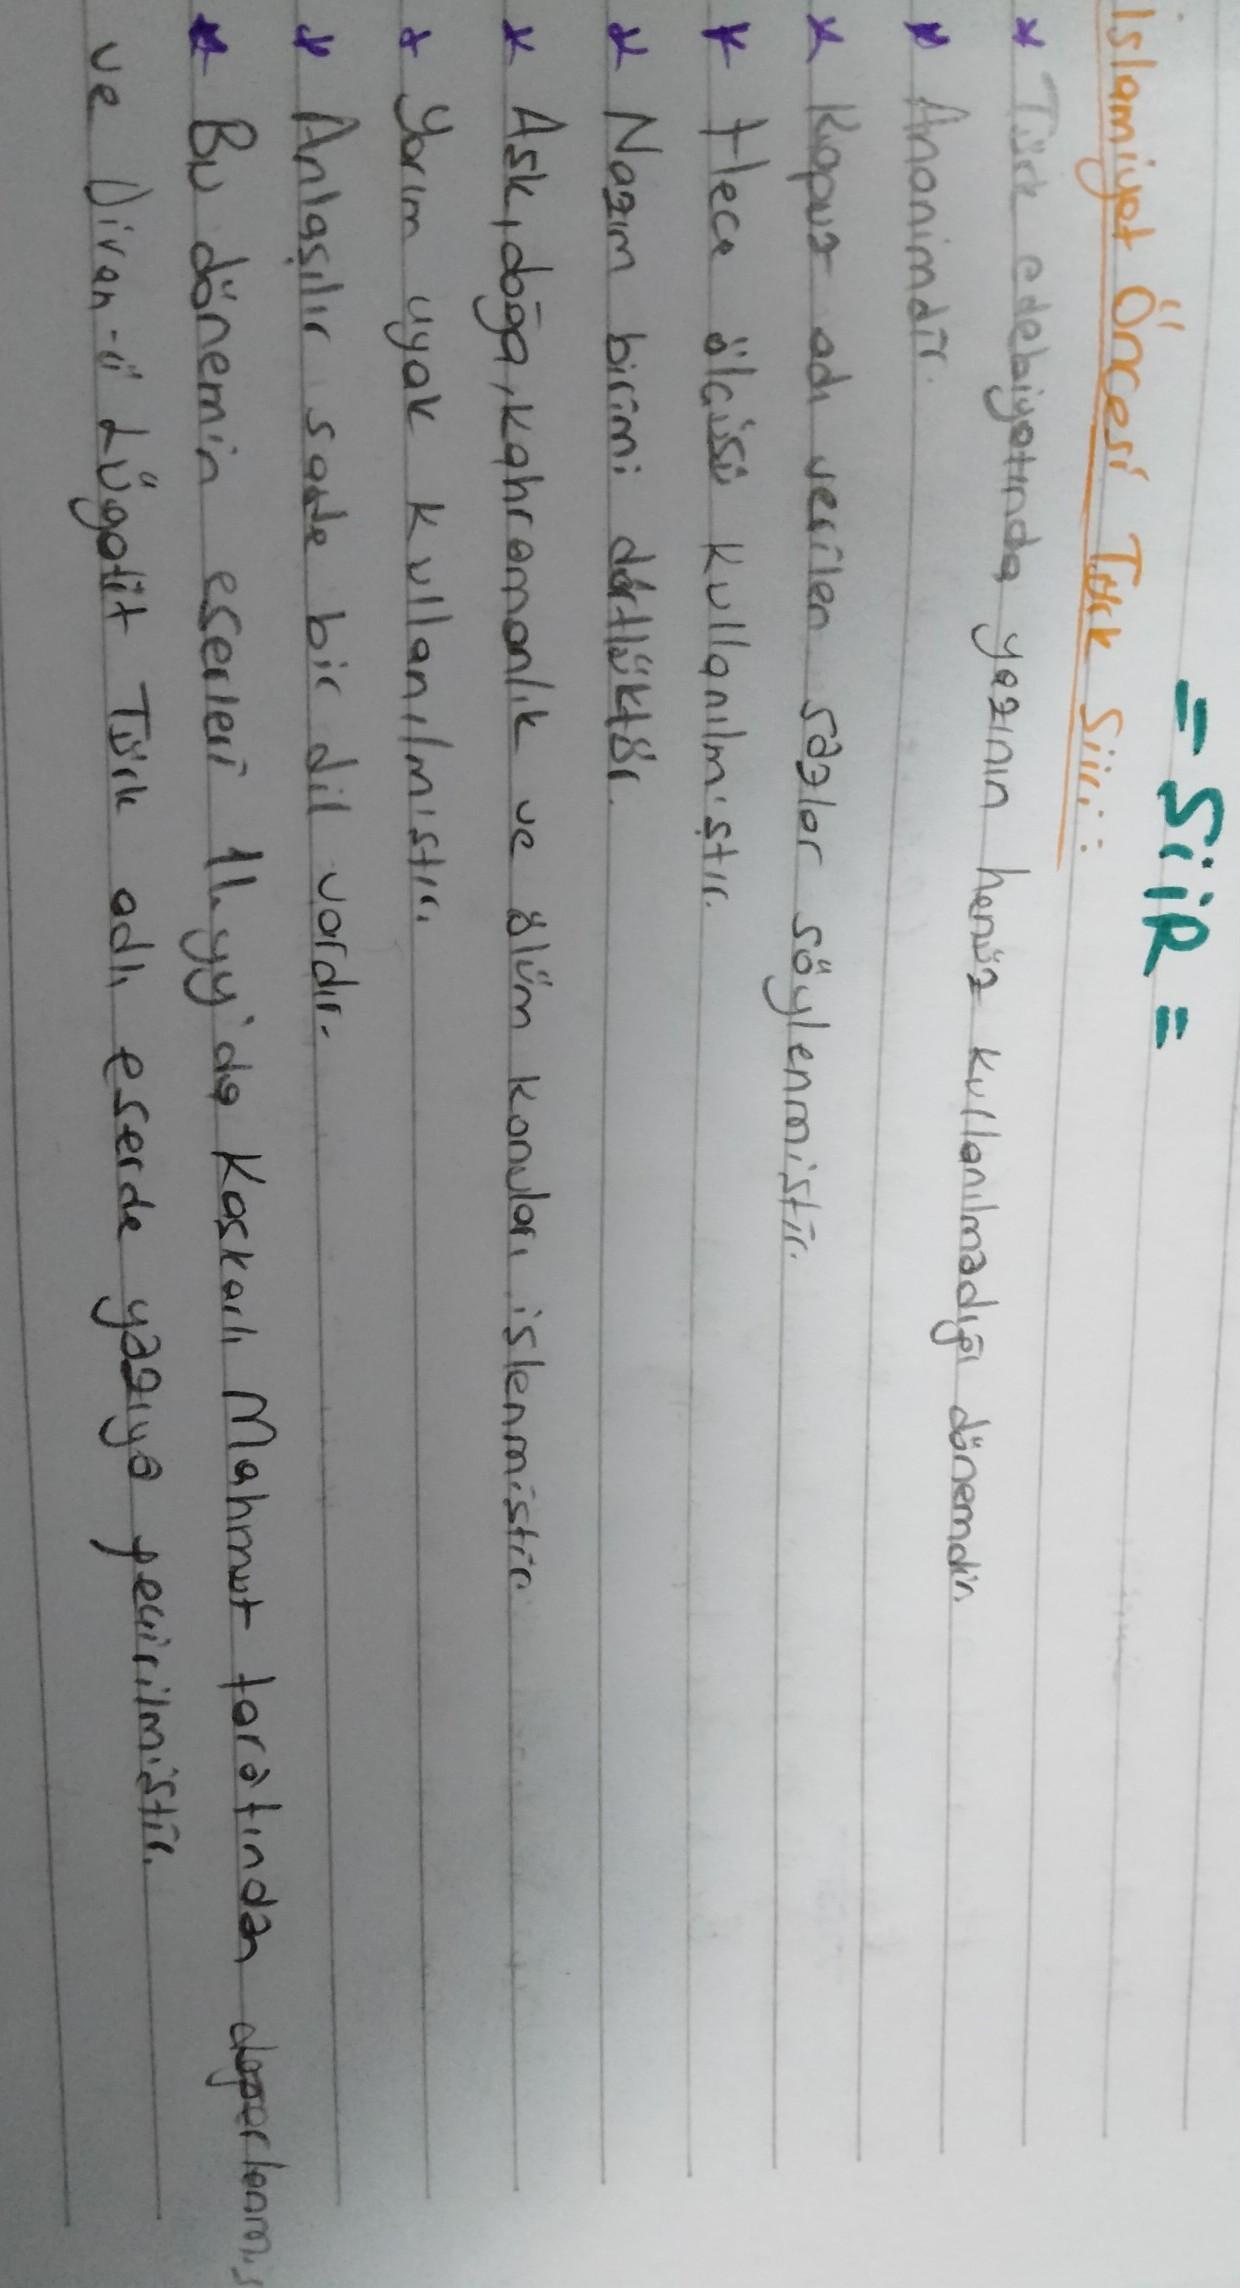 = ŞiiR =
İslamiyet Öncesi Türk Şiiri:
* Türk edebiyatında yazının henüz kullanılmadığı dönemdir.
* Anonimdir.
* Kopuz adı verilen sazlar söylenmiştir.
* Hece ölçüsü kullanılmıştır.
* Nazım birimi dörtlüktür.
* Ask, doğa, kahramanlık ve ölüm konuları işlenmiştir.
* Yarım uyak kullanılmıştır.
* Anlaşılır sade bir dil vardır.
* Bu dönemin eserleri 11.yy'da Kaşkarlı Mahmut tarafından
ve Divan-ü Lügatit Türk adlı eserde yazıya geçirilmiştir.